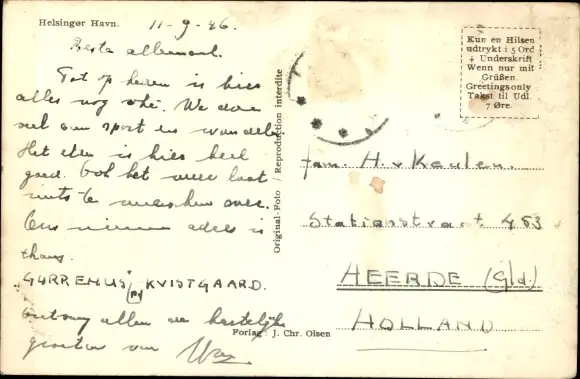 Helsingør Havn.
11-9-46.
Beste allemaal.
Tot op heden is hier
alles nog oké. We doen
veel aan sport en wandelen
Het eten is hier heel
goed. Ook het weer laat
niets te wenschen over.
Ons nieuwe adres is
thans.
"GURREHUS" KVISTGAARD.
Ontvang allen de hartelijke
groeten van
Original-Foto / Reproduction interdite
Forlag: J. Chr. Olsen
Kun en Hilsen
udtrykt i 5 Ord
+ Underskrift
Wenn nur mit
Grüßen.
Greetings only
Takst til Udl.
7 Øre.
fam. H. v Keulen.
Stationstraat 453
HEERDE (Gld.)
HOLLAND